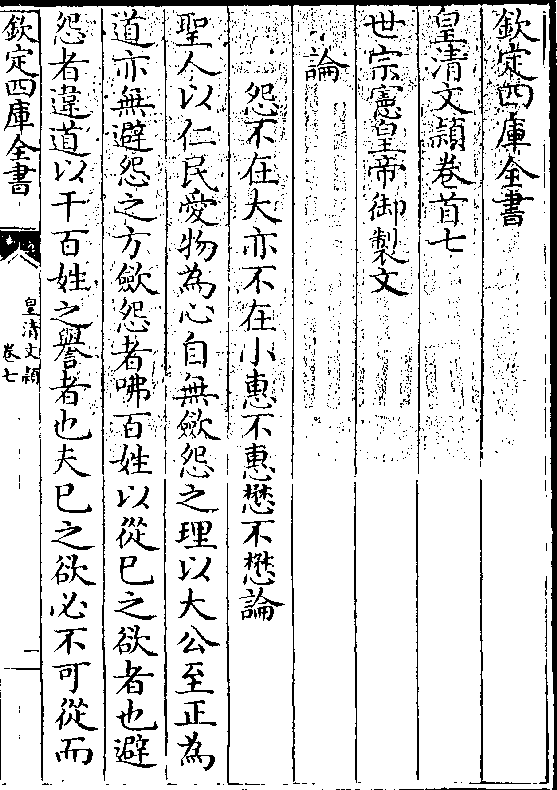 欽定四庫全書
皇清文穎卷首七
世宗憲皇帝御製文
論
怨不在大亦不在小惠不惠懋不懋論
聖人以仁民愛物為心自無歛怨之理以大公至正為
道亦無避怨之方歛怨者咈百姓以從已之欲者也避
怨者違道以干百姓之譽者也夫已之欲必不可從而
欽定四庫全書
皇清文穎
卷七
一